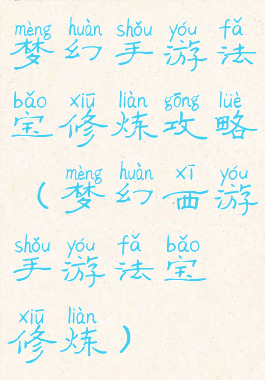 mèng huàn shǒu yóu fǎ
梦幻手游法
bǎo xiū liàn gōng lüè
宝修炼攻略
mèng huàn xī yóu
(梦幻西游
shǒu yóu fǎ bǎo
手游法宝
xiū liàn
修炼)